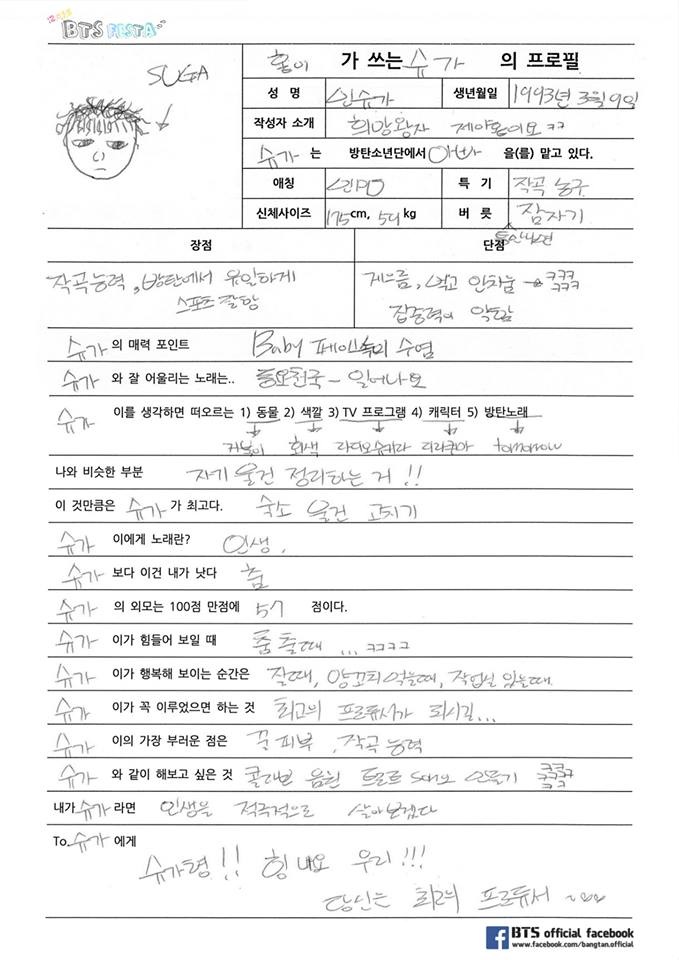 BTS FESTA
SUGA
홉이 가 쓰는 슈가 의 프로필
성 명 민슈가 생년월일 1993년 3월 9일
작성자 소개 희망왕자 제이홉이요 ㅋㅋ
슈가 는 방탄소년단에서 아버지 을(를) 맡고 있다.
애칭 특 기 작곡 농구
신체사이즈 175cm, kg 버 릇 잠자기
틈만나면
장점 단점
작곡능력, 방탄에서 유일하게
스포츠 담당
게으름, 먹고 안치움 ㅋㅋㅋ
ㅋㅋㅋ
집중력이 약함
슈가 의 매력 포인트 Baby 페이스 속의 수염
슈가 와 잘 어울리는 노래는.. 동요천국 - 일어나요
슈가 이를 생각하면 떠오르는 1) 동물 2) 색깔 3) TV 프로그램 4) 캐릭터 5) 방탄노래
거북이 회색 라디오슈키라 리락쿠마 tomorrow
나와 비슷한 부분 자기 물건 정리하는 거 !!
이 것만큼은 슈가 가 최고다. 숙소 물건 고치기
슈가 이에게 노래란? 인생.
슈가 보다 이건 내가 낫다 춤
슈가 의 외모는 100점 만점에 57 점이다.
슈가 이가 힘들어 보일 때 춤 출때 ... ㅋㅋㅋㅋ
슈가 이가 행복해 보이는 순간은 잘때, 양꼬치 먹을때, 작업실 있을때.
슈가 이가 꼭 이루었으면 하는 것 최고의 프로듀서가 되시길...
슈가 이의 가장 부러운 점은 꿀피부, 작곡 능력
슈가 와 같이 해보고 싶은 것 콜라보 음원 트로트 만들기 ㅋㅋㅋ
ㅋㅋㅋㅋ
ㅋㅋ
내가 슈가 라면 인생을 적극적으로 살아보겠다
To. 슈가 에게
슈가형!! 힘 내요 우리!!!
당신은 최고의 프로듀서
BTS official facebook
www.facebook.com/bangtan.official